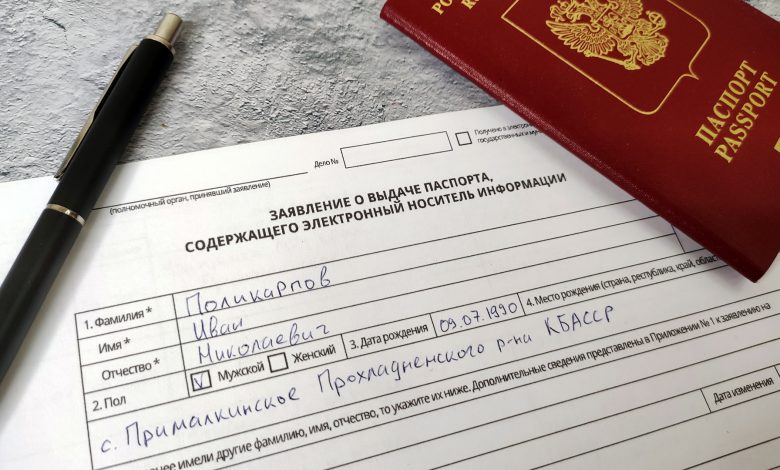 ПАСПОРТ
PASSPORT
Дело №
Получено в электронно
государственных и мун
(полномочный орган, принявший заявление)
ЗАЯВЛЕНИЕ О ВЫДАЧЕ ПАСПОРТА,
СОДЕРЖАЩЕГО ЭЛЕКТРОННЫЙ НОСИТЕЛЬ ИНФОРМАЦИИ
1. Фамилия * Поликарпов
Имя * Иван
Отчество * Николаевич
2. Пол V Мужской Женский 3. Дата рождения 09.07.1990 4. Место рождения (страна, республика, край, област
с. Прималкинское Прохладненского р-на КБАССР
нее имели другие фамилию, имя, отчество, то укажите их ниже. Дополнительные сведения представлены в Приложении № 1 к заявлению на
Дата изменения